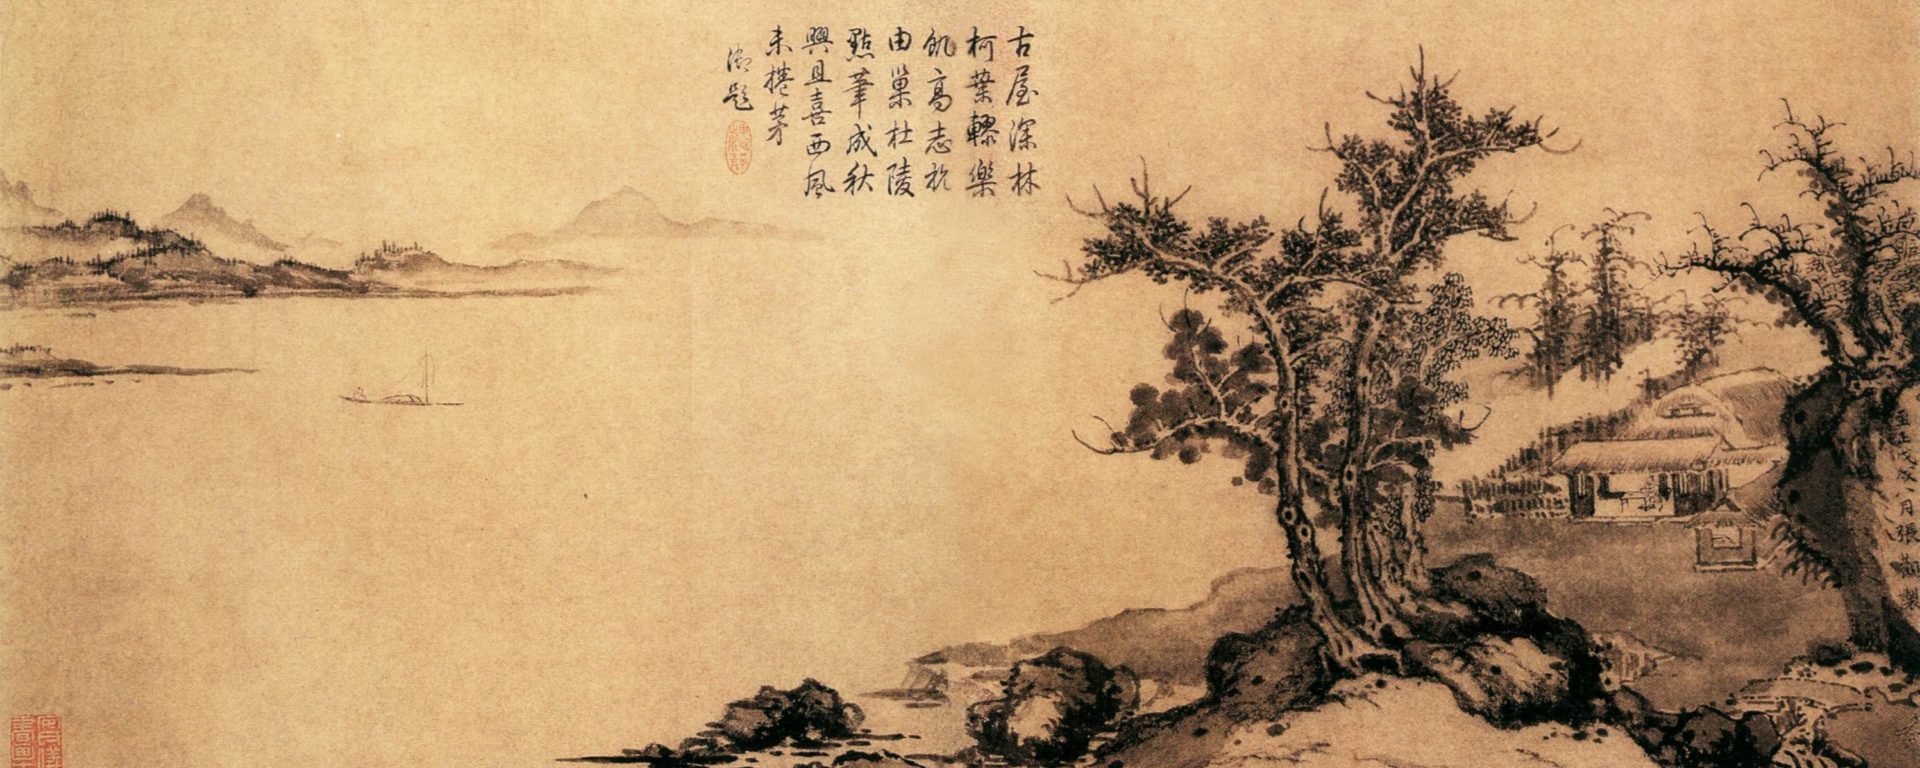 至正戊戌八月張觀製
古屋深林
柯葉轇樂
飢高志於
由巢杜陵
點筆成秋
興且喜西風
未捲茅
御題